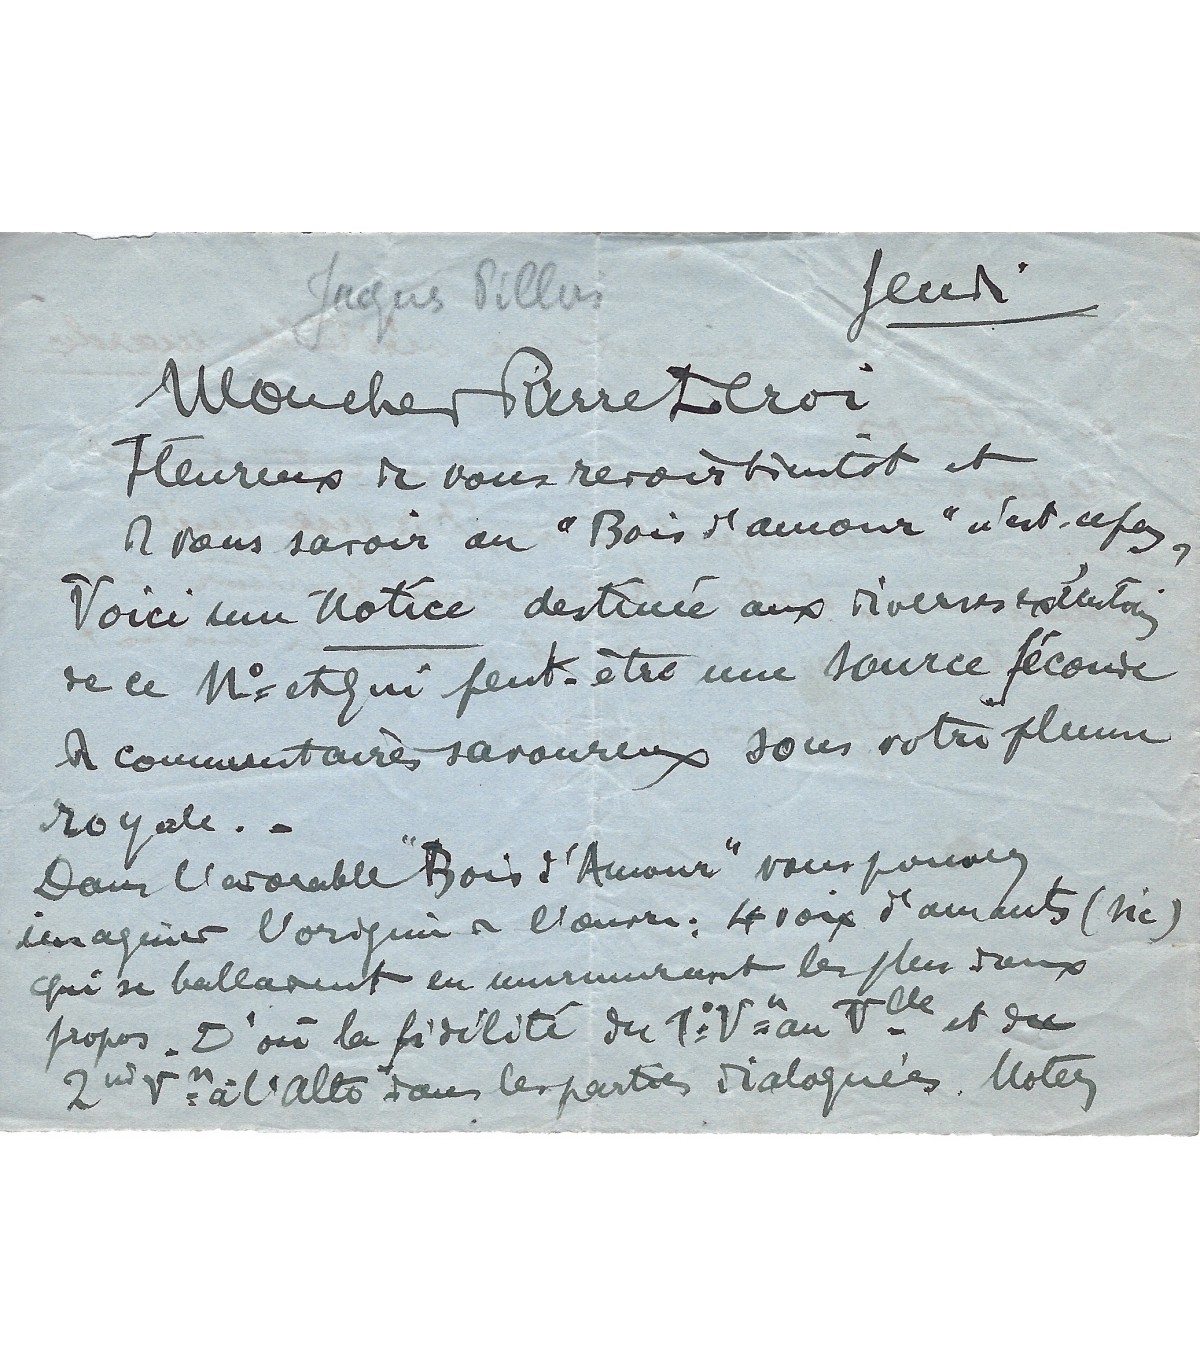 Jaques Pillois
Jeudi
Mon cher Pierre Leroi
Heureux de vous revoir bientôt et
de vous savoir au "Bois d'amour" n'est-ce pas,
Voici une Notice destinée aux diverses
de ce No et qui peut-être une source féconde
de commentaires savoureux sous votre plume
royale. -
Dans l'adorable "Bois d'Amour" vous pouvez
imaginer l'origine de l'œuvre : 4 voix d'amants (sic)
qui se balladent en murmurant les plus doux
propos - D'où la fidélité du 1o Von au Vclle et du
2nd Von à l'Alto dans les parties dialoguées. Notez